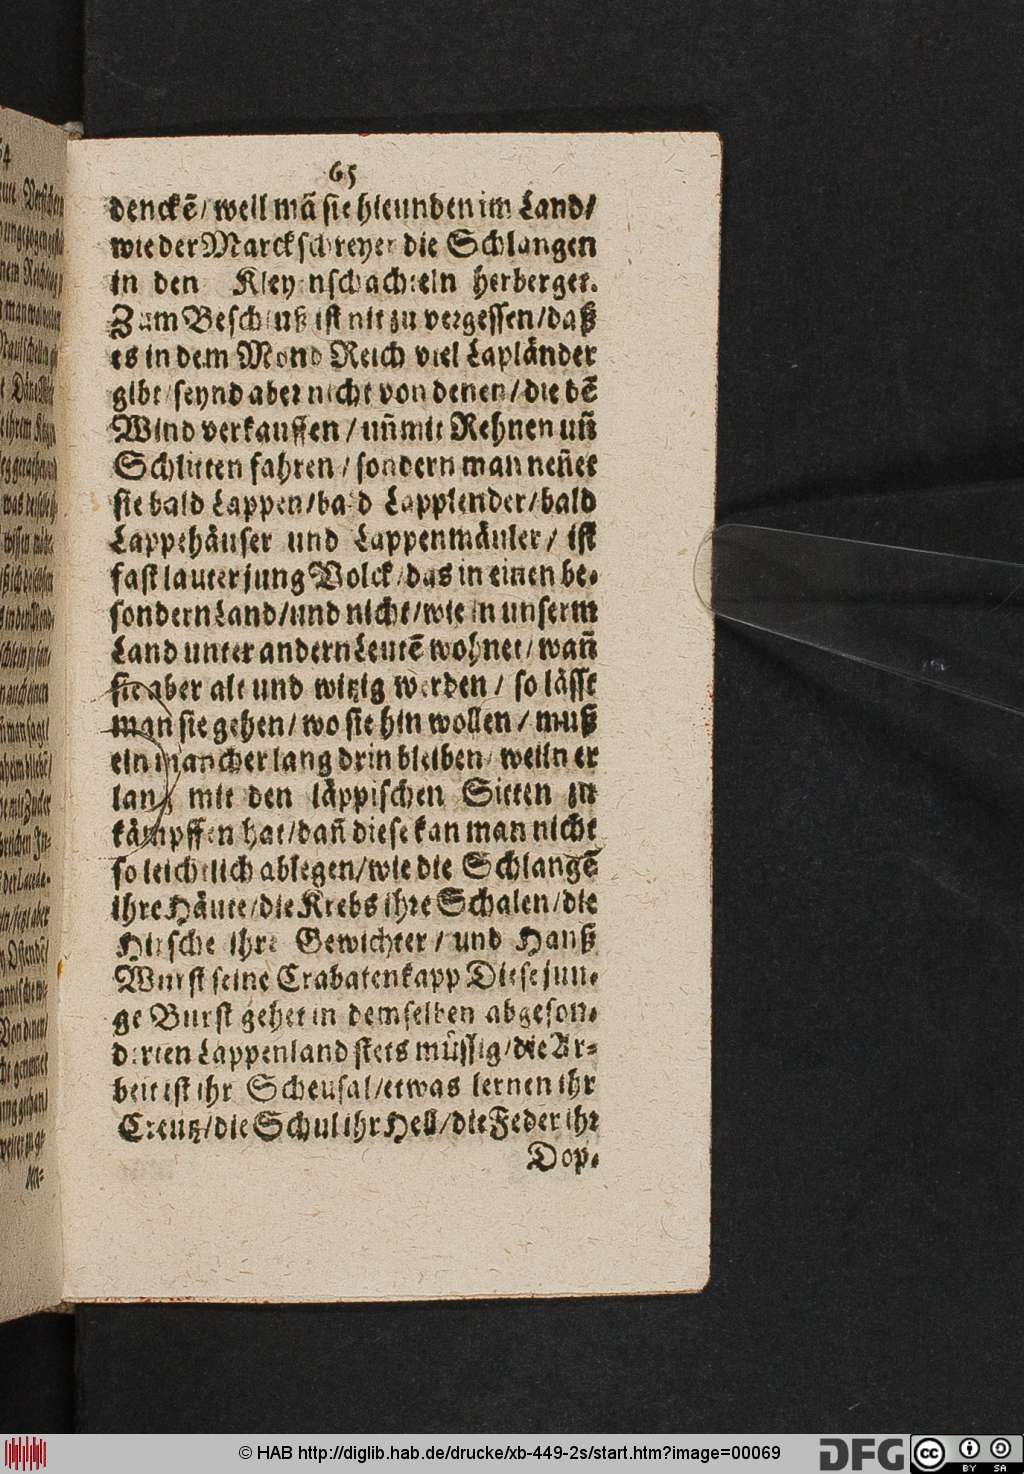 65
denckẽ/ weil mã sie hieunden im Land/
wie der Marckschreyer die Schlangen
in den Kleynschachteln herberget.
Zum Beschluß ist nit zu vergessen/daß
es in dem Mond Reich viel Lapländer
gibt/seynd aber nicht von denen/die dẽ
Wind verkauffen/ uñ mit Rehnen uñ
Schlitten fahren/ sondern man neñet
sie bald Lappen/bald Lapplender/bald
Lappehäuser und Lappenmäuler/ ist
fast lauter jung Volck/das in einen be-
sondern Land/und nicht/wie in unserm
Land unter andern Leutẽ wohnet/wañ
sie aber alt und witzig werden/ so lässt
man sie gehen/ wo sie hin wollen/ muß
ein mancher lang drin bleiben/ weiln er
lang mit den läppischen Sitten zu
kämpffen hat/dañ diese kan man nicht
so leichtlich ablegen/wie die Schlangẽ
ihre Häute/die Krebs ihre Schalen/die
Hirsche ihre Gewichter/ und Hanß
Wurst seine Crabatenkapp Diese jun-
ge Burst gehet in demselben abgeson-
derten Lappenland stets müssig/die Ar-
beit ist ihr Scheusal/etwas lernen ihr
Creutz/die Schul ihr Hell/die Feder ihr
Dop-
© HAB http://diglib.hab.de/drucke/xb-449-2s/start.htm?image=00069
DFG
cc BY SA